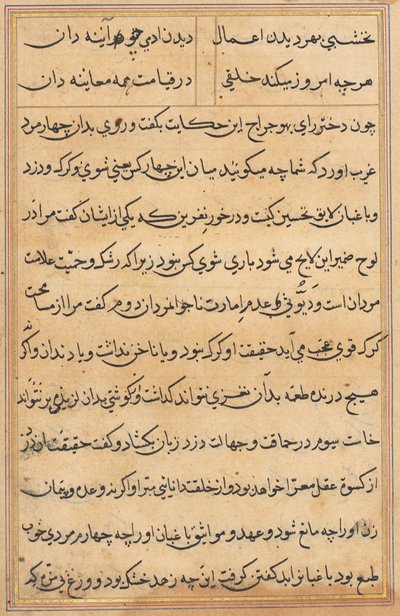 نخشبی بهر دیدن اعمال دیدن ادمی چو آینه دان
هرچه امروز میکند خلقی در قیامت همه معاینه دان
چون دختر رای بهوجراج این حکایت بکفت و روی بدان چهار مرد
غریب اورد که شما چه میکوئید میان این چهار کس یعنی شوی و کرک و دزد
و باغبان لایق تحسین کیست و درخور نفرین که یکی از ایشان کفت مرا در
لوح ضمیر این لایح می شود باری شوی کس نبود زیرا که رشک و حمیت علامت
مردان است و دیوثی و عدم امارت ناجوانمردان دوم کفت مرا از مسامحت
کرک قوی عجب می آید حقیقت او کرک نبود و یا ناخن نداشت و یا دندان و اکر
هیچ درنده طعمه بدان نغزی نتواند کذاشت و کوشتی بدان لذیذی بر نتواند
خاست سیوم در حماقت و جهالت دزد زبان بکشاد و کفت حقیقت ان دزد
از کسوة عقل معرا خواهد بود و از خلقت دانایی مبرا او اکر بدو عده و پیمان
زن او را چه مانع شود و عهد و مواثیق باغبان او را چه چهارم مردی خوب
طبع بود باغبانرا بد کفتن کرفت این چه زهد خشک بود و ورع بی مزه که